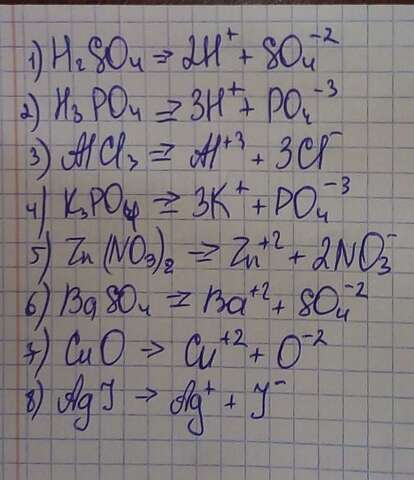 1) H₂SO₄ ⇒ 2H⁺ + SO₄⁻²
2) H₃PO₄ ⇄ 3H⁺ + PO₄⁻³
3) AlCl₃ ⇄ Al⁺³ + 3Cl⁻
4) K₃PO₄ ⇄ 3K⁺ + PO₄⁻³
5) Zn(NO₃)₂ ⇄ Zn⁺² + 2NO₃⁻
6) BaSO₄ ⇄ Ba⁺² + SO₄⁻²
7) CuO → Cu⁺² + O⁻²
8) AgJ → Ag⁺ + J⁻